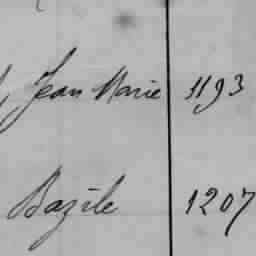 Jean Marie 1193
Bazile 1207